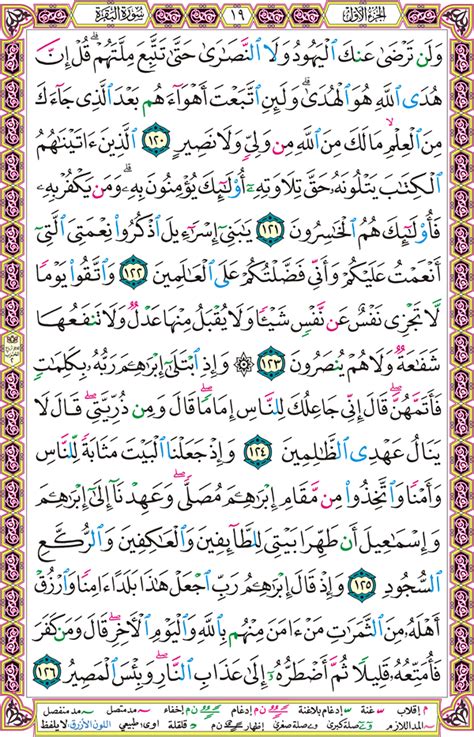 الجزء الأول ١٩ سورة البقرة
وَلَن تَرْضَىٰ عَنكَ ٱلْيَهُودُ وَلَا ٱلنَّصَٰرَىٰ حَتَّىٰ تَتَّبِعَ مِلَّتَهُمْ ۗ قُلْ إِنَّ
هُدَى ٱللَّهِ هُوَ ٱلْهُدَىٰ ۗ وَلَئِنِ ٱتَّبَعْتَ أَهْوَآءَهُم بَعْدَ ٱلَّذِى جَآءَكَ
مِنَ ٱلْعِلْمِ ۙ مَا لَكَ مِنَ ٱللَّهِ مِن وَلِىٍّ وَلَا نَصِيرٍ ١٢٠ ٱلَّذِينَ ءَاتَيْنَٰهُمُ
ٱلْكِتَٰبَ يَتْلُونَهُۥ حَقَّ تِلَاوَتِهِۦٓ أُو۟لَٰٓئِكَ يُؤْمِنُونَ بِهِۦ ۗ وَمَن يَكْفُرْ بِهِۦ
فَأُو۟لَٰٓئِكَ هُمُ ٱلْخَٰسِرُونَ ١٢١ يَٰبَنِىٓ إِسْرَٰٓءِيلَ ٱذْكُرُوا۟ نِعْمَتِىَ ٱلَّتِىٓ
أَنْعَمْتُ عَلَيْكُمْ وَأَنِّى فَضَّلْتُكُمْ عَلَى ٱلْعَٰلَمِينَ ١٢٢ وَٱتَّقُوا۟ يَوْمًا
لَّا تَجْزِى نَفْسٌ عَن نَّفْسٍ شَيْـًٔا وَلَا يُقْبَلُ مِنْهَا عَدْلٌ وَلَا تَنفَعُهَا
شَفَٰعَةٌ وَلَا هُمْ يُنصَرُونَ ١٢٣ ۞ وَإِذِ ٱبْتَلَىٰٓ إِبْرَٰهِۦمَ رَبُّهُۥ بِكَلِمَٰتٍ
فَأَتَمَّهُنَّ ۖ قَالَ إِنِّى جَاعِلُكَ لِلنَّاسِ إِمَامًا ۖ قَالَ وَمِن ذُرِّيَّتِى ۖ قَالَ لَا
يَنَالُ عَهْدِى ٱلظَّٰلِمِينَ ١٢٤ وَإِذْ جَعَلْنَا ٱلْبَيْتَ مَثَابَةً لِّلنَّاسِ
وَأَمْنًا وَٱتَّخِذُوا۟ مِن مَّقَامِ إِبْرَٰهِۦمَ مُصَلًّى ۖ وَعَهِدْنَآ إِلَىٰٓ إِبْرَٰهِۦمَ
وَإِسْمَٰعِيلَ أَن طَهِّرَا بَيْتِىَ لِلطَّآئِفِينَ وَٱلْعَٰكِفِينَ وَٱلرُّكَّعِ
ٱلسُّجُودِ ١٢٥ وَإِذْ قَالَ إِبْرَٰهِۦمُ رَبِّ ٱجْعَلْ هَٰذَا بَلَدًا ءَامِنًا وَٱرْزُقْ
أَهْلَهُۥ مِنَ ٱلثَّمَرَٰتِ مَنْ ءَامَنَ مِنْهُم بِٱللَّهِ وَٱلْيَوْمِ ٱلْءَاخِرِ ۖ قَالَ وَمَن كَفَرَ
فَأُمَتِّعُهُۥ قَلِيلًا ثُمَّ أَضْطَرُّهُۥٓ إِلَىٰ عَذَابِ ٱلنَّارِ ۖ وَبِئْسَ ٱلْمَصِيرُ ١٢٦
م إقلاب غنة إدغام بلاغنة ن م إدغام إخفاء مد متصل مد منفصل
المد اللازم صلة كبرى وے صلة صغرى إظهار ن م قلقلة اوى؛ طبيعي اللون الأزرق لا يلفظ